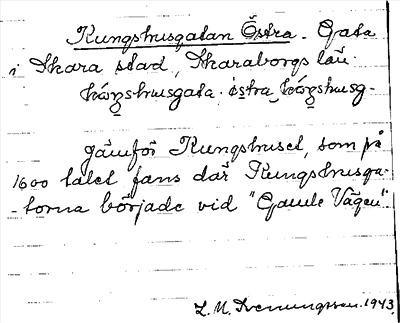 Kungshusgatan Östra. Gata
i Skara stad, Skaraborgs län.
kóŋshusgata. östra kóŋshusg-
jämför Kungshuset, som på
1600 talet fans där Kungshusga-
-torna började vid "Gamle Vägen".
L. M. Svenungsson. 1943.